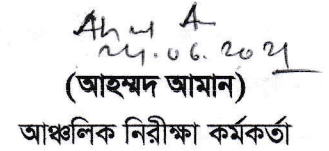 24.06.2021
(আহম্মদ আমান)
আঞ্চলিক নিরীক্ষা কর্মকর্তা